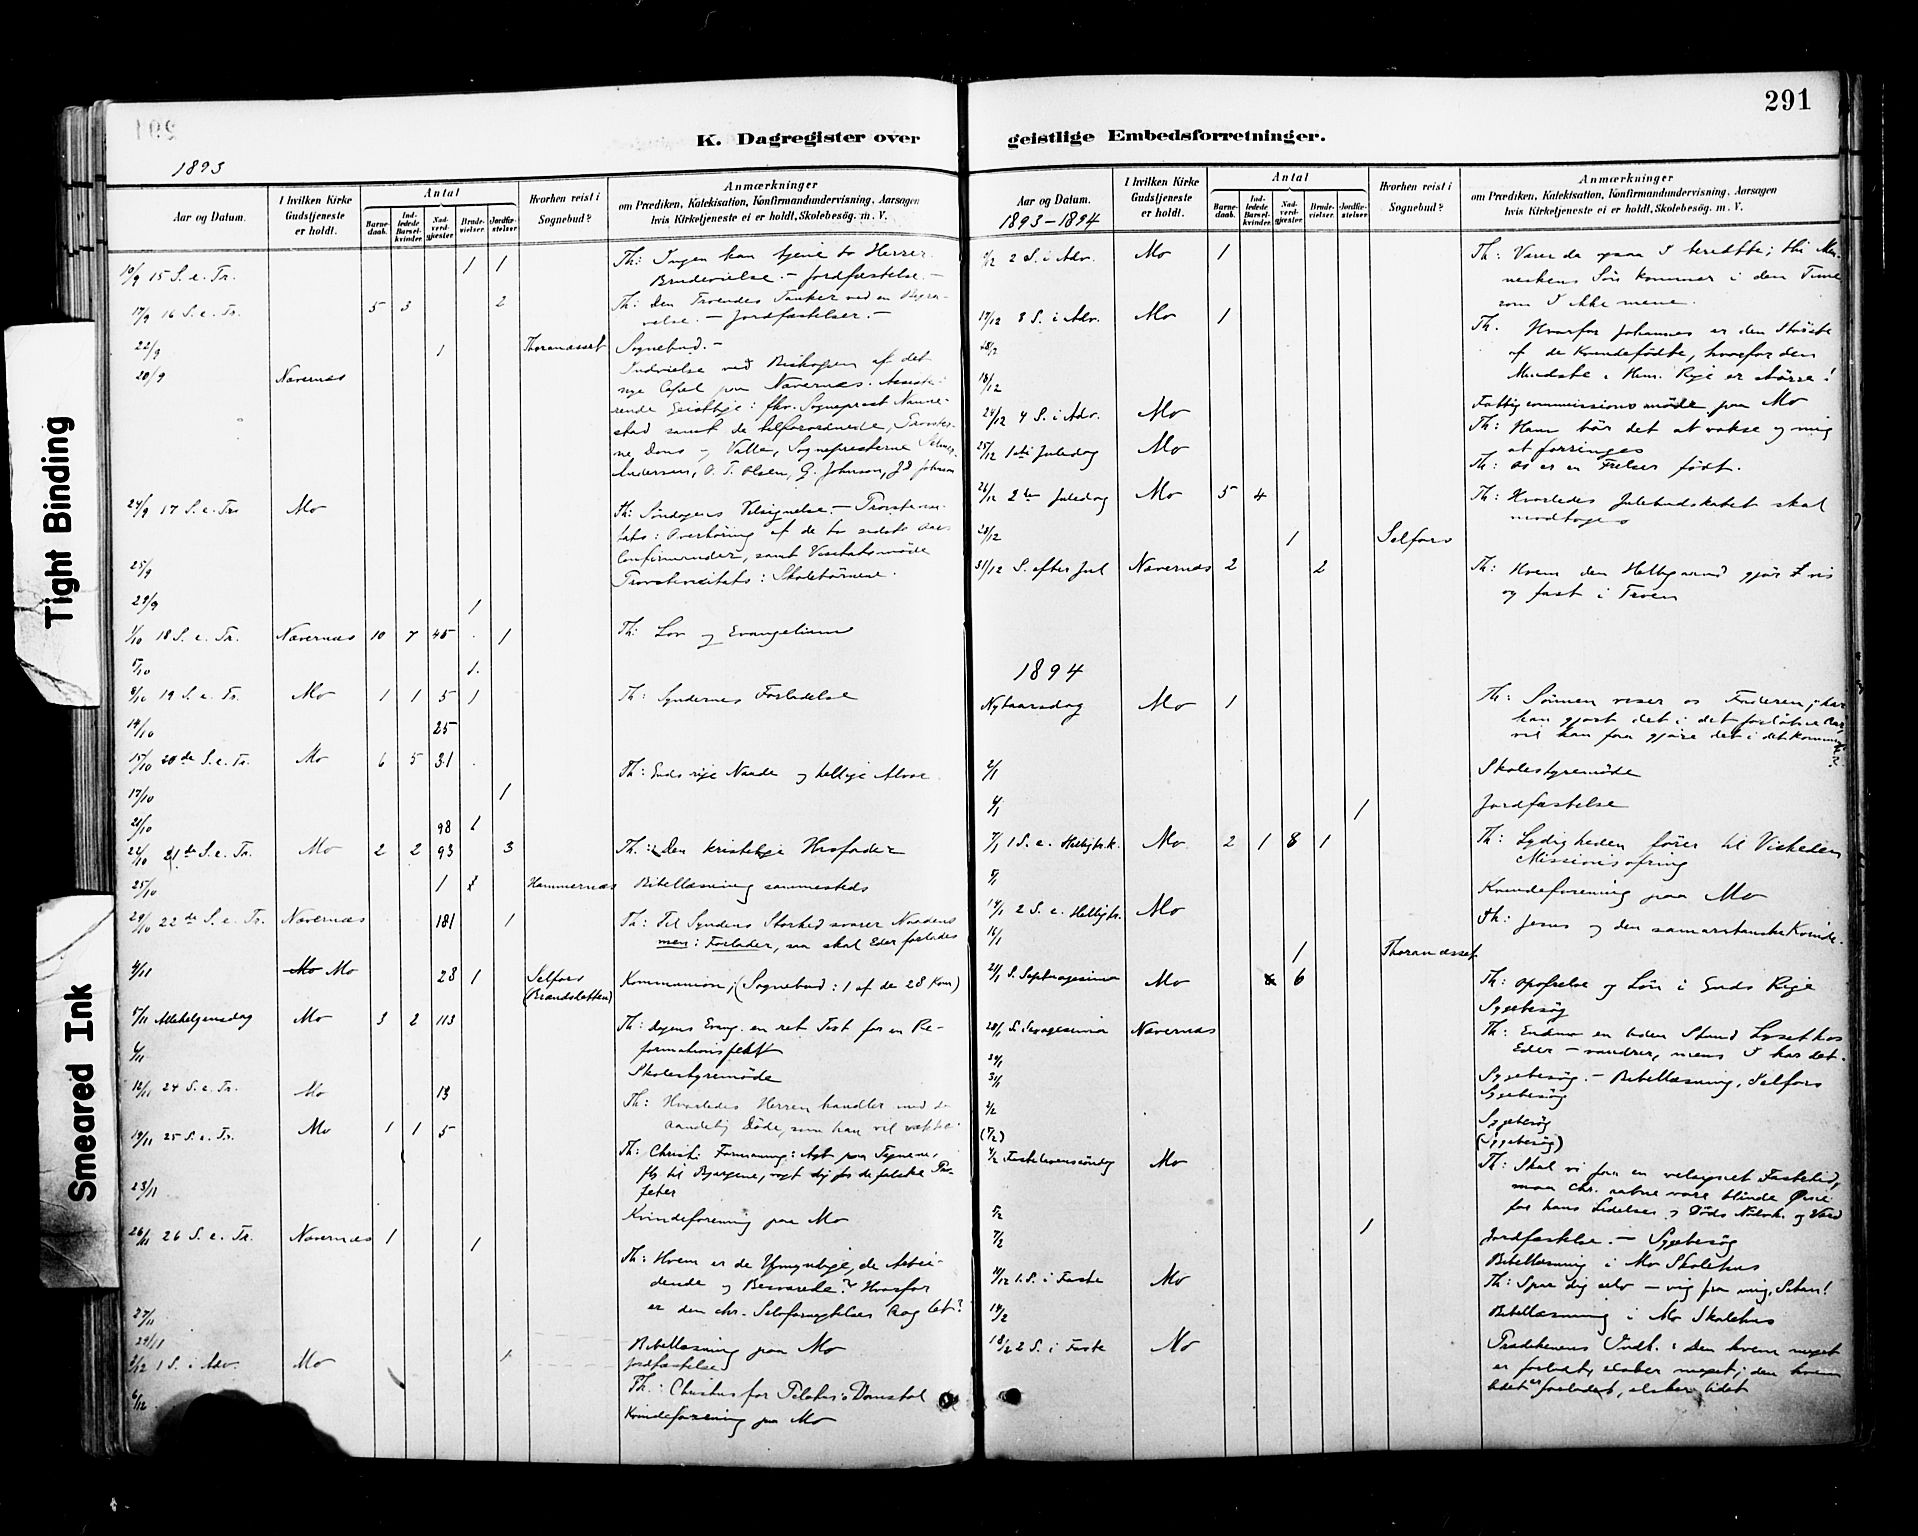 291
K. Dagregister over
geistlige Embedsforretninger.
1893
Aar og Datum.
I hvilken Kirke Gudstjeneste er holdt.
Antal
Barnedaab.
Indledede Barselkvinder
Nadverdgjester
Brudevielser
Jordfæstelser
Hvorhen reist i Sognebud?
Anmærkninger
om Prædiken, Katekisation, Konfirmandundervisning, Aarsagen
hvis Kirketjeneste ei er holdt, Skolebesög. m. V.
10/9 15 S. e. Tr. 1 1 Th: Ingen kan tjene to Herrer.
Brudevielse. — Jordfæstelse. —
17/9 16 S. e. Tr. 5 3 2 Th: Den Troendes Tanker ved en Begravelse. — Jordfæstelser. —
22/9 1 Thoranæsset Sognebud. —
20/9 Nævernæs Indvielse ved Biskopen af det
nye Capel paa Nævernæs.
24/9 17 S. e. Tr. Mo Th: Söndagens Velsignelse. —
Confirmander, samt Visitatsmöde
25/9 Provstevisitats: Skolebörnene.
29/9 1
1/10 18 S. e. Tr. Nævernæs 10 7 45 1 Th: Lov og Evangelium
5/10 1
8/10 19 S. e. Tr. Mo 1 1 5 1 Th: Syndernes Forladelse
14/10 25
15/10 20de S. e. Tr. Mo 6 5 31 Th: Guds rige Naade og hellige Alvor
17/10 1
21/10 98 1
22/10 21de S. e. Tr. Mo 2 2 93 3 Th: Den kristelige Husfader
25/10 1 Hammernæs Bibellæsning sammesteds
29/10 22de S. e. Tr. Nævernæs 181 1 Th: Til Syndens Storhed svarer Naadens
men: Forlader, saa skal Eder forlades
4/11 Mo Mo 28 1 Selfors (Brændsletten) Kommunion; (Sognebud: 1 af de 28 Kom)
5/11 Allehelgensdag Mo 3 2 113 Th: Dagens Evang. en ret Text for en Reformationsfest
6/11 Skolestyremöde
12/11 24 S. e. Tr. Mo 13 Th: Hvorledes Herren handler med de
aandelig Döde, som han vil vække.
19/11 25 S. e. Tr. Mo 1 1 5 Th: Christi Formaning: Agt paa Tegnene,
fly til Bjergene, vogt dig for de falske Profeter
23/11 Kvindeforening paa Mo
26/11 26 S. e. Tr. Nævernæs 1 1 Th: Hvem er de Umyndige, de Arbeidende og Besværede? Hvorfor
er den chr. Selvfornegtelses Aag let?
27/11 Bibellæsning paa Mo
29/11 Jordfæstelse
3/12 1 S. i Adv. Mo 1 Th: Christus for Pilatus's Domstol
6/12 Kvindeforening paa Mo
Aar og Datum.
1893-1894
I hvilken Kirke Gudstjeneste er holdt.
Antal
Barnedaab.
Indledede Barselkvinder
Nadverdgjester
Brudevielser
Jordfæstelser
Hvorhen reist i Sognebud?
Anmærkninger
om Prædiken, Katekisation, Konfirmandundervisning, Aarsagen
hvis Kirketjeneste ei er holdt, Skolebesög. m. V.
2 S. i Adv. Mo 1 Th: Værer da ogsaa I beredtte; thi Menneskens Sön kommer i den Time
som I ikke mene.
17/12 3 S. i Adv. Mo 1 Th. Hvorfor Johannes er den Störste
af de Kvindefödte, hvorfor den
Mindste i Him. Rige er större!
18/12 Fattigcommissionsmöde paa Mo
24/12 4 S. i Adv. Mo Th: Ham bör det at vokse og mig
at forringes
25/12 1ste Juledag Mo Th: Os er en Frelser födt.
26/12 2den Juledag Mo 5 4 Th: Hvorledes Julebudskabet skal
modtages
28/12 1 Selfors
31/12 S. efter Jul Nævernæs 2 2 Th: Hvem den Helligaand gjör vis
og fast i Troen
1894
Nytaarsdag Mo 1 Th: Sönnen viser os Faderen; har
han gjort det i det forlöbne Aar,
vil han faa gjöre det i det kommende?
2/1 Skolestyremöde
4/1 1 Jordfæstelse
7/1 1 S. e. Helligtr.k. Mo 2 1 8 1 Th: Lydigheden förer til Visheden
Missionsofring
Kvindeforening paa Mo
14/1 2 S. e. Helligtr. Mo Th: Jesus og den samaritanske Kvinde.
16/1 1 Thoranæsset
21/1 S. Septuagesima Mo 6 Th: Opofrelse og Lön i Guds Rige
Sygebesög
28/1 S. Sexagesima Nævernæs Th: Endnu en liden Stund Lyset hos
Eder — vandrer, mens I har det.
30/1 Sygebesög. — Bibellæsning, Selfors
31/1 Sygebesög
2/2 Sygebesög
(Sygebesög)
4/2 Fastelavenssöndag Mo Th: Skal vi faa en velsignet Fastetid,
maa Chr. aabne vore blinde Öine
for hans Lidelses og Döds Nödv. og Værd
5/2 1 Jordfæstelse. — Sygebesög
7/2 Bibellæsning i Mo Skolehus
1. S. i Faste Mo Th: Spar dig selv — vig fra mig, Satan!
14/2 Bibellæsning i Mo Skolehus
18/2 2 S. i Faste Mo Prædikenens Indh.: den hvem meget
er forladt, elsker meget; den hvem
lidet er forladt, elsker lidet
Tight Binding
Smeared Ink